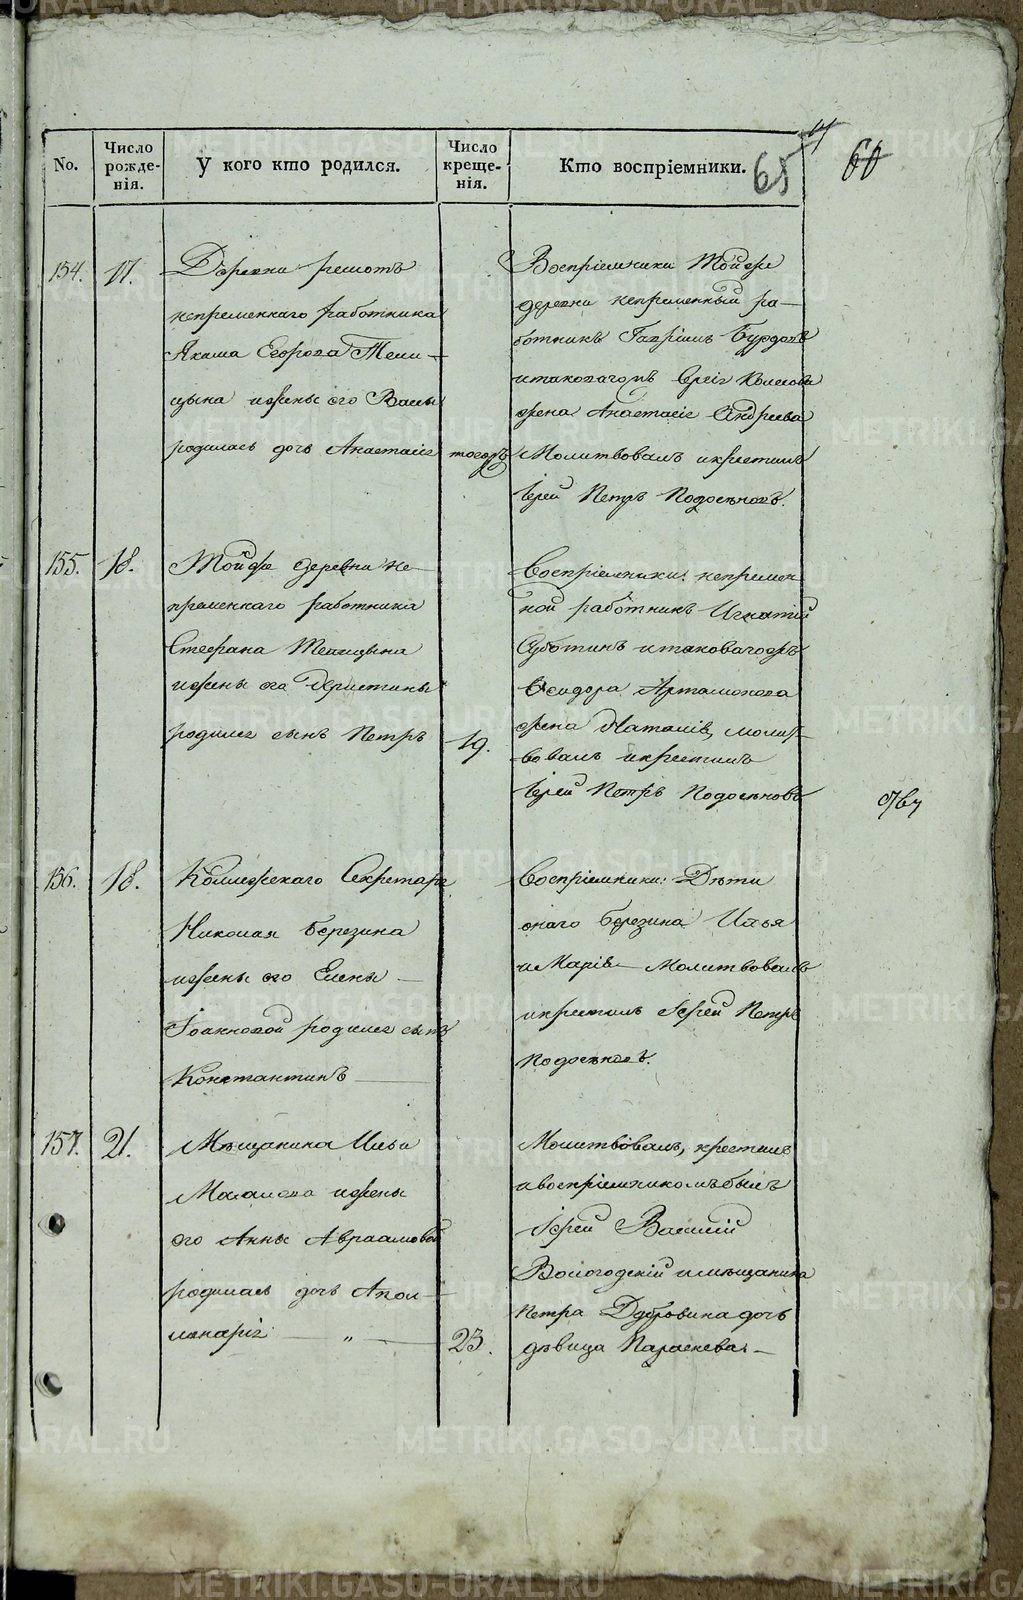 65
60
No.
Число рожде-
нія.
У кого кто родился.
Число креще-
нія.
Кто воспріемники.
154.
17.
Деревни
непременнаго работника
Якима Егорова
и жены его
родилась дочь Анастасія
тогожъ
Воспріемники Тойже
деревни непременный ра-
ботникъ Гавріилъ
и таковагожъ
жена Анастасія Андреева
Молитвовалъ и крестилъ
Іерей Петръ Подосеновъ.
155.
18.
Тойже деревни не-
пременнаго работника
Стефана
и жены его
родился сынъ Петръ
19.
Воспріемники: непремен
ной работникъ Игнатій
Суботинъ и таковагожъ
Ѳеодора Артамонова
жена Наталія, молит-
вовалъ и крестилъ
Іерей Петръ Подосеновъ
156.
18.
Коллежскаго Секретаря
Николая Березина
и жены его Елены
Іоанновой родился сынъ
Константинъ
Воспріемники: Дѣти
онаго Березина Илья
и Марія Молитвовалъ
и крестилъ Іерей Петръ
Подосеновъ.
157.
21.
Мѣщанина Ильи
и жены
его Анны Авраамовой
родилась дочь Апол-
линарія "
23.
Молитвовалъ, крестилъ
и воспріемникомъ былъ
Іерей Василій
Вологодскій и мѣщанина
Петра Дубровина дочь
дѣвица Параскева
METRIKI.GASO-URAL.RU